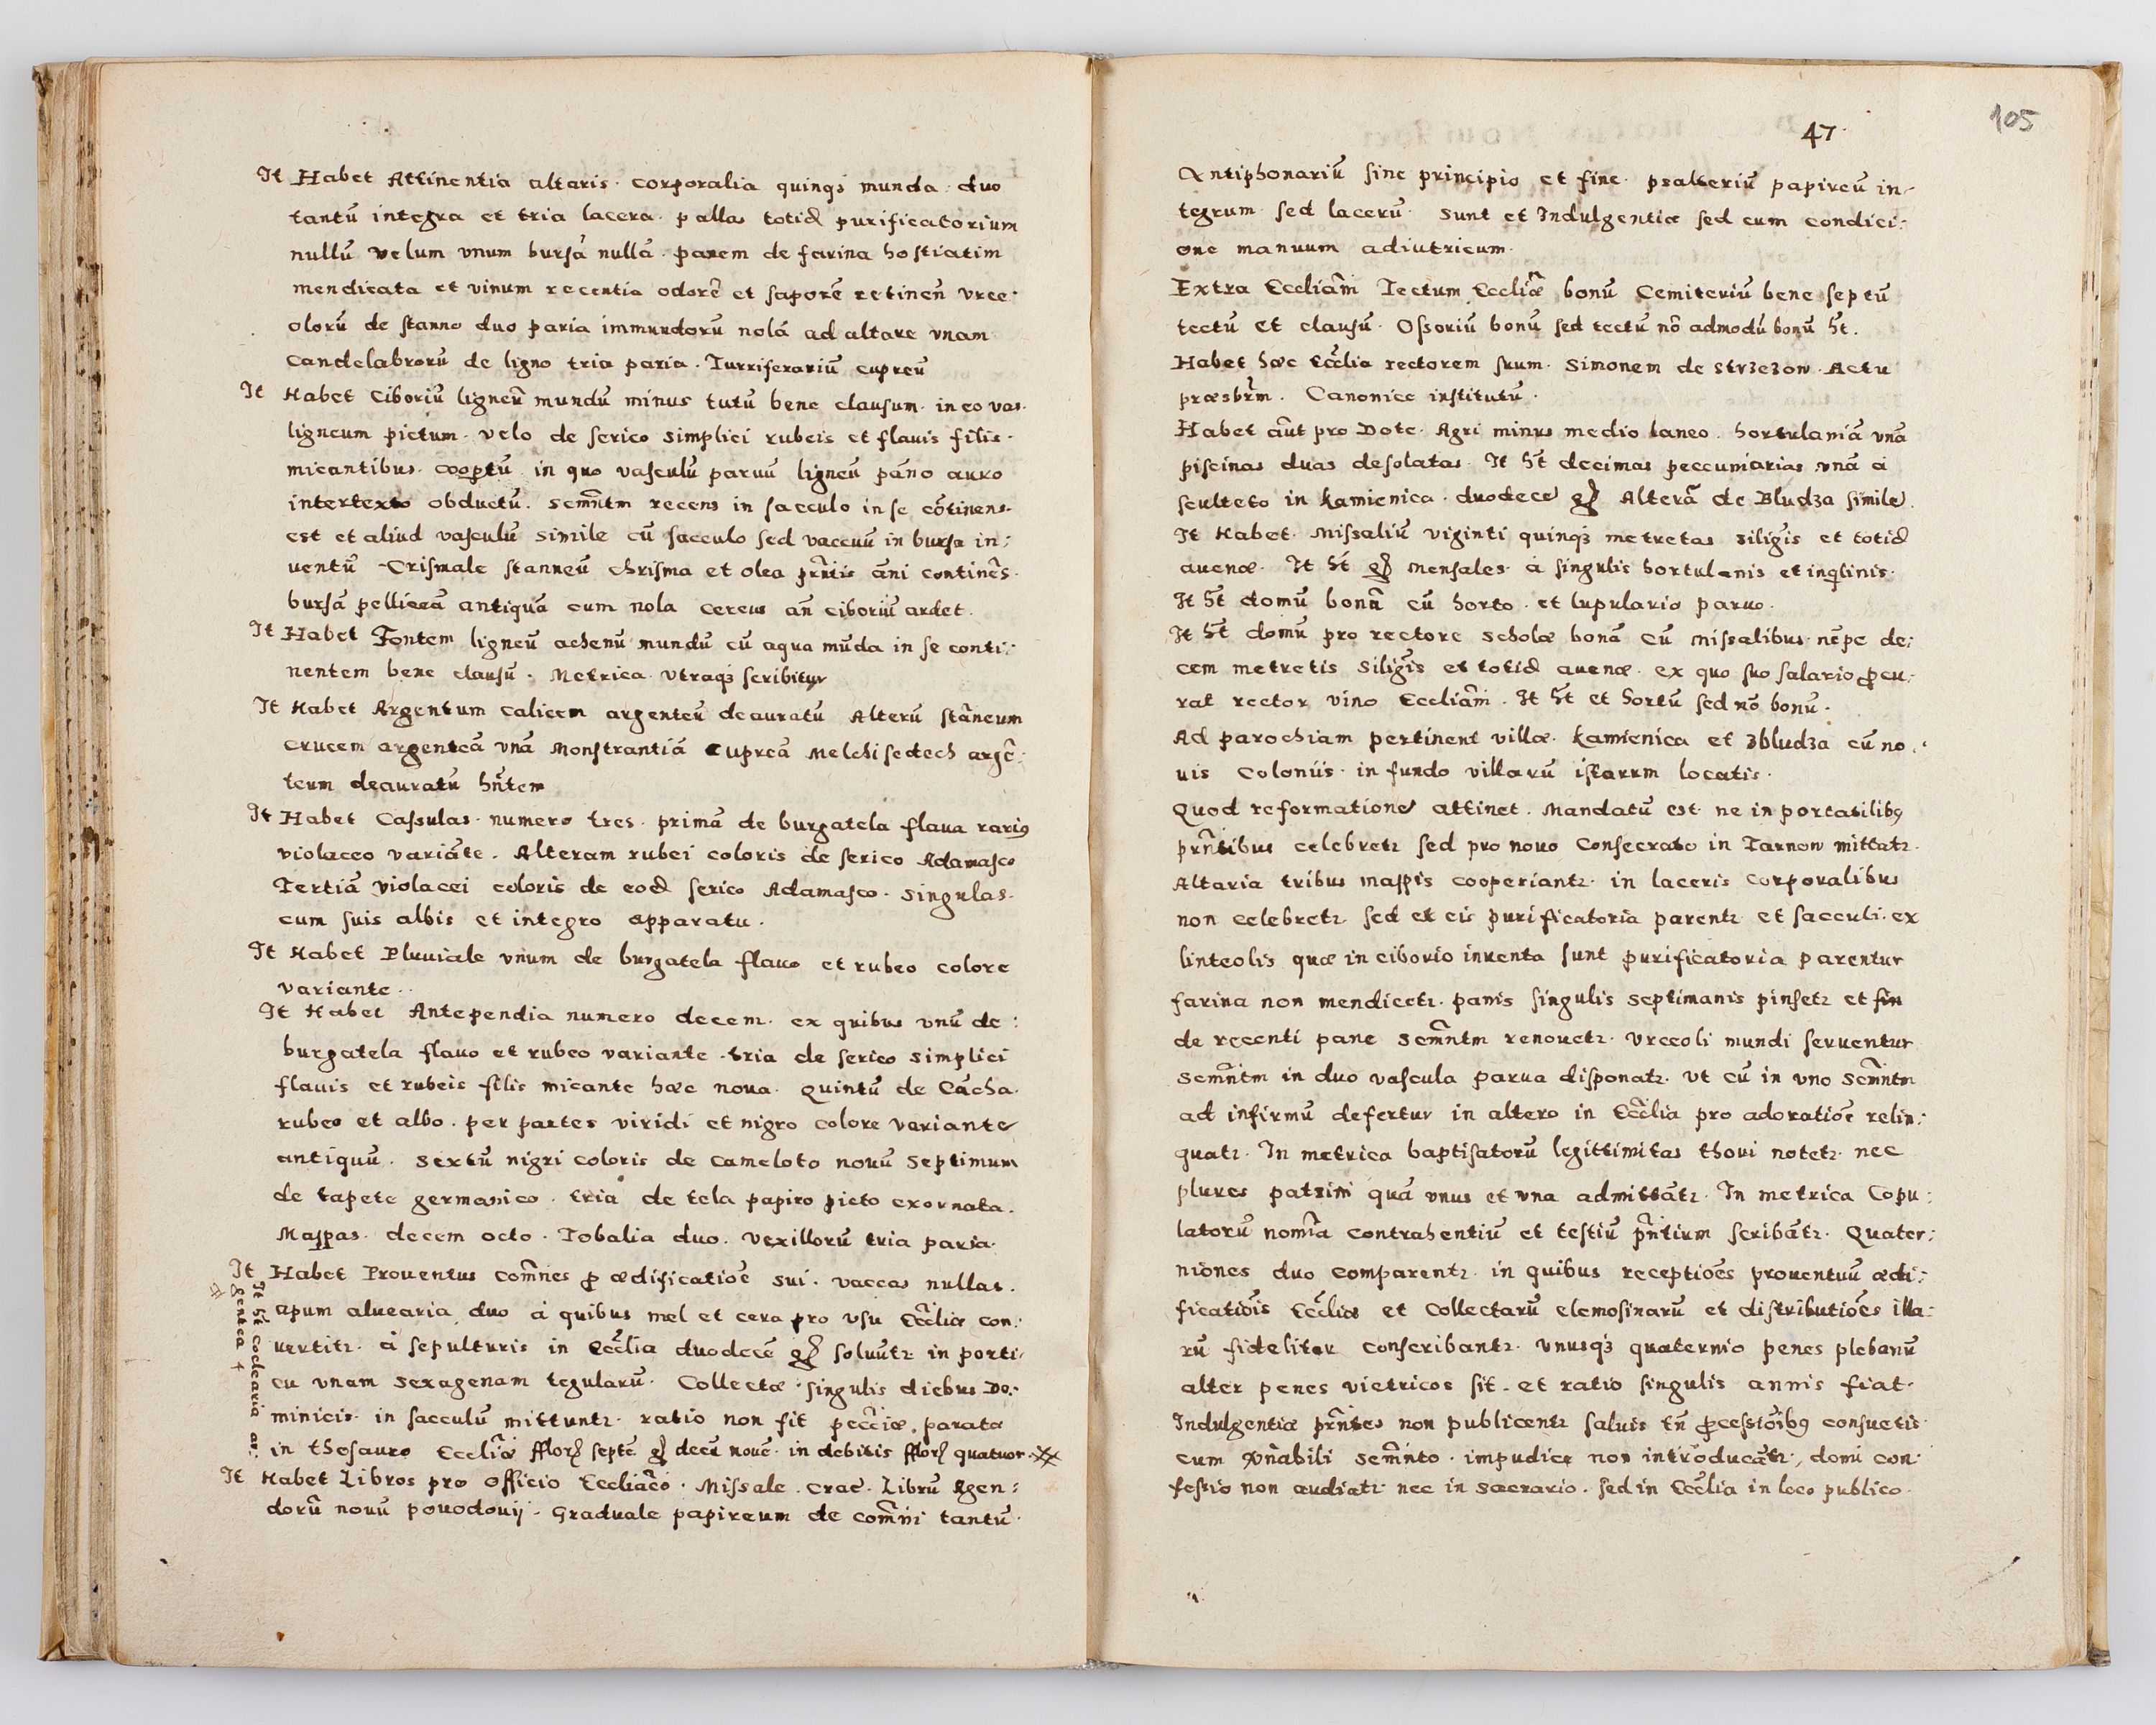 It Habet Attinentia altaris. corporalia quinqȝ munda. duo
tantū integra et tria lacera. pallas totid purificatorium
nullū velum vnum bursā nullā. panem de farina hostiatim
mendicata et vinum recentia odorē et saporē retinen̄ vrce:
olorū de stanno duo paria immundorū nolā ad altare vnam
candelabrorū de ligno tria paria. Turriferariū cupreū
It Habet Ciboriū ligneū mundū minus tutū bene clausum. in eo vas.
ligneum pictum. velo de serico simplici rubeis et flauis filis.
micantibus. coop̱tū. in quo vasculū paruū ligneū pāno auro
intertexto obductū. Scm̄ntm recens in sacculo in se cōtinens.
est et aliud vasculū simile cū sacculo sed vacuū in bursa in:
uentū Crismale stanneū chrisma et olea pr̄ntis āni continēs.
bursā pelliceā antiquā cum nola cereus an̄ ciboriū ardet.
It Habet Fontem ligneū ahenū mundū cū aqua mūda in se conti:
nentem bene clausū. Metrica vtraqȝ scribitur
It Habet Argentum calicem argenteū deauratū Alterū stāneum
crucem argenteā vnā Monstrantiā Cupreā Melchisedech argē:
teum deauratū hn̄tem
It Habet Cassulas. numero tres. primā de burgatela flaua rariꝰ
violaceo variāte. Alteram rubei coloris de serico Adamasco
Tertiā violacei coloris de eod serico Adamasco. singulas.
cum suis albis et integro apparatu.
It Habet Pluuiale vnum de burgatela flauo et rubeo colore
variante.
It Habet Antependia numero decem. ex quibus vnū de:
burgatela flauo et rubeo variante. tria de serico simplici
flauis et rubeis filis micante hæc noua. Quintū de Cācha.
rubeo et albo. per partes viridi et nigro colore variante
antiquū. Sextū nigri coloris de Cameloto nouū Septimum
de tapete germanico. tria de tela papiro picto exornata.
Mappas. decem octo. Tobalia duo. vexillorū tria paria.
It Habet Prouentus com̄nes ꝓ ædificatiōe sui. vaccas nullas.
apum aluearia duo à quibus mel et cera pro vsu Eccl̄iæ con:
uertitꝛ. à sepulturis in Eccl̄ia duodecē gꝭ soluūtꝛ in porti:
cu vnam sexagenam tegularū. Collectæ singulis diebus Do:
minicis. in sacculū mittuntꝛ. ratio non fit pecc̄iæ. parata
in thesauro Eccl̄iæ fflorꝭ septē gꝭ decē nouē. in debitis fflorꝭ quatuor.
It ht̄ coclearia ar:
gentea 4
It Habet Libros pro officio Eccliāco. Missale. Crac̄. Librū Agen:
dorū nouū pouodouij. Graduale papireum de com̄ni tantū.
105
47
Antiphonariū sine principio et fine. psalteriū papireū in:
tegrum sed lacerū. Sunt et Indulgentiæ sed cum condici:
one manuum adiutricum.
Extra Eccliām Tectum Eccliæ bonū Cemiteriū bene septū
tectū et clausū. Ossoriū bonū sed tectū nō admodū bonū ht̄.
Habet hæc Eccl̄ia rectorem suum. Simonem de Strzezow. Actu
præsbr̄m. Canonice institutū.
Habet aūt pro Dote. Agri minus medio laneo. hortulaniā vnā
piscinas duas desolatas. It ht̄ decimas peccuniarias vnā à
sculteto in Kamienica. duodece gꝭ Alterā de Bludza simile.
It Habet. Missaliū viginti quinqȝ metretas siligis et totid
auenæ. It ht̄ gꝭ mensales. à singulis hortulanis et inqlinis.
It ht̄ domū bonā cū horto. et lupulario paruo.
It ht̄ domū pro rectore scholæ bonā cū missalibus nēpe de:
cem metretis siligis et totid auenæ. ex quo suo salario ꝓcu:
rat rector vino Eccliām. It ht̄ et hortū sed nō bonū.
Ad parochiam pertinent villæ. Kamienica et Zbludza cū no:
uis coloniis. in fundo villarū istarum locatis.
Quod reformationē attinet. Mandatū est. ne in portatilibꝰ
pr̄ntibus celebretꝛ sed pro nouo Consecrato in Tarnow mittatꝛ.
Altaria tribus mappis cooperiantꝛ. in laceris corporalibus
non celebretꝛ. sed et eis purificatoria parentꝛ et sacculi. ex
linteolis quæ in ciborio inuenta sunt purificatoria parentur
farina non mendicetꝛ. panis singulis septimanis pinsetꝛ et sin
de recenti pane Scm̄ntm renouetꝛ. vrceoli mundi seruentur
Scm̄ntm in duo vascula parua disponatꝛ. vt cū in vno Scm̄ntm
ad infirmū defertur in altero in Eccl̄ia pro adoratiōe relin:
quatꝛ. In metrica baptisatorū legittimitas thori notetꝛ. nec
plures patrini quā vnus et vna admittātꝛ. In metrica Copu:
latorū nomīa contrahentiū et testiū pn̄tium scribātꝛ. Quater:
niones duo comparentꝛ. in quibus receptiōes prouentuū ædi:
ficatiōis Eccl̄iæ et Collectarū elemosinarū et distributiōes illa:
rū fideliter conscribantꝛ. vnusqȝ quaternio penes plebanū
alter penes vietricos sit. et ratio singulis annis fiat.
Indulgentiæ pr̄ntes non publicentꝛ saluis tn̄ ꝓcessiōibꝰ consuetis
cum Vn̄abili Scm̄nto. impudicę non introducātꝛ, domi con:
fessio non audiatꝛ nec in sacrario. sed in Eccl̄ia in loco publico.